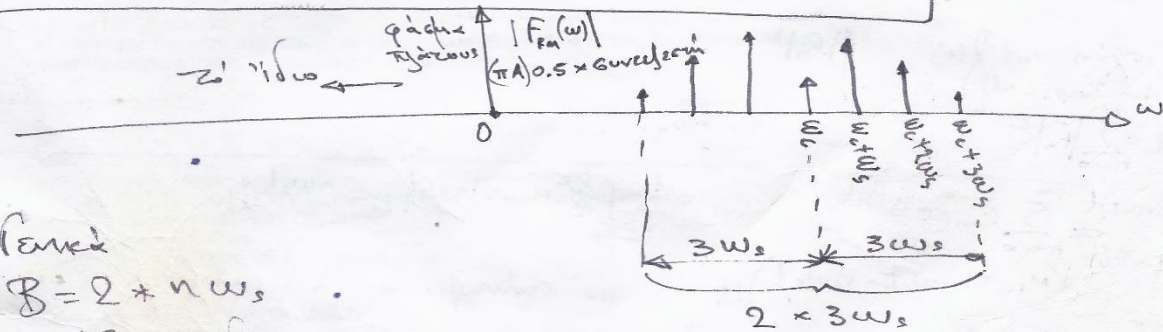 φάσμα |F_FM(ω)|
πλάτους
(πA) 0.5 × συντελεστή
το ίδιο
0
ω
ω_c
ω_c+ω_s
ω_c+2ω_s
ω_c+3ω_s
3ω_s
3ω_s
2 × 3ω_s
Γενικά
B = 2 * nω_s